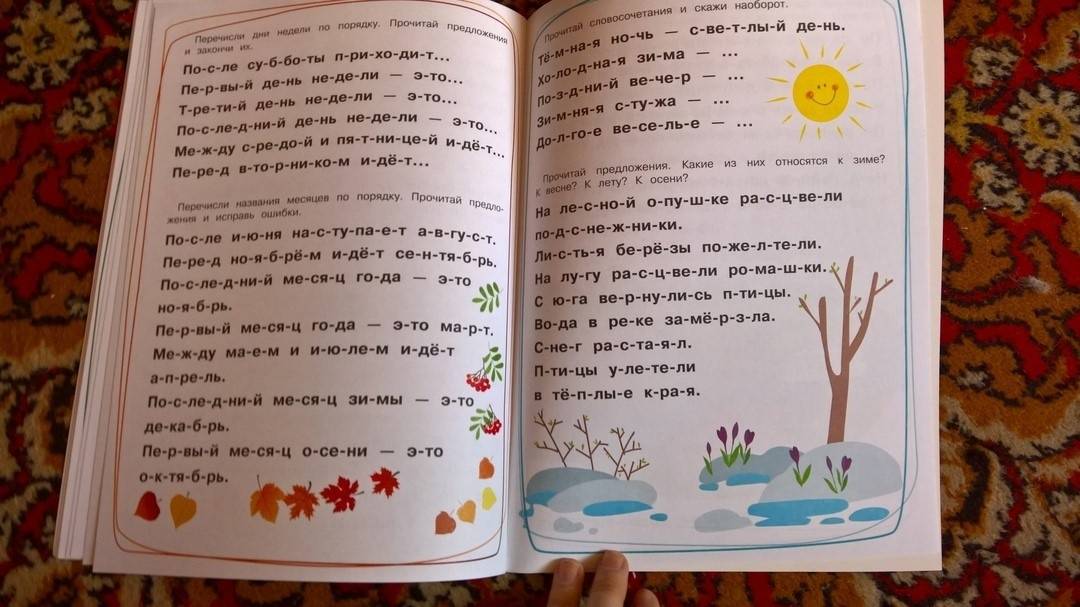 Перечисли дни недели по порядку. Прочитай предложения
и закончи их.
По-с-ле су-б-бо-ты п-ри-хо-ди-т...
Пе-р-вы-й де-нь не-де-ли — э-то...
Т-ре-ти-й де-нь не-де-ли — э-то...
По-с-ле-д-ни-й де-нь не-де-ли — э-то...
Ме-ж-ду с-ре-до-й и пя-т-ни-це-й и-дё-т...
Пе-ре-д в-то-р-ни-ко-м и-дё-т...
Перечисли названия месяцев по порядку. Прочитай предло-
жения и исправь ошибки.
По-с-ле и-ю-ня на-с-ту-па-е-т а-в-гу-с-т.
Пе-ре-д но-я-б-рё-м и-дё-т се-н-тя-б-рь.
По-с-ле-д-ни-й ме-ся-ц го-да — э-то
но-я-б-рь.
Пе-р-вы-й ме-ся-ц го-да — э-то ма-р-т.
Ме-ж-ду ма-е-м и и-ю-ле-м и-дё-т
а-п-ре-ль.
По-с-ле-д-ни-й ме-ся-ц зи-мы — э-то
де-ка-б-рь.
Пе-р-вы-й ме-ся-ц о-се-ни — э-то
о-к-тя-б-рь.
Прочитай словосочетания и скажи наоборот.
Тё-м-на-я но-чь — с-ве-т-лы-й де-нь.
Хо-ло-д-на-я зи-ма — ...
По-з-д-ни-й ве-че-р — ...
Зи-м-ня-я с-ту-жа — ...
До-л-го-е ве-се-ль-е — ...
Прочитай предложения. Какие из них относятся к зиме?
К весне? К лету? К осени?
На ле-с-но-й о-пу-ш-ке ра-с-ц-ве-ли
по-д-с-не-ж-ни-ки.
Ли-с-ть-я бе-рё-зы по-же-л-те-ли.
На лу-гу ра-с-ц-ве-ли ро-ма-ш-ки.
С ю-га ве-р-ну-ли-сь п-ти-цы.
Во-да в ре-ке за-мё-р-з-ла.
С-не-г ра-с-та-я-л.
П-ти-цы у-ле-те-ли
в тё-п-лы-е к-ра-я.